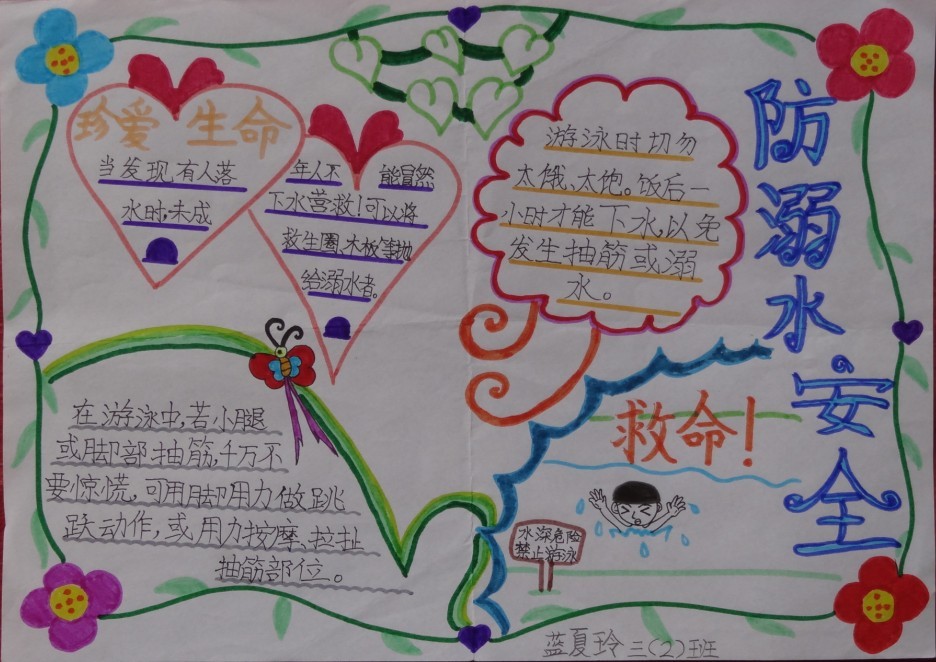 防溺水安全
珍爱生命
当发现有人落
水时,未成
年人不能冒然
下水营救!可以将
救生圈、木板等抛
给溺水者。
游泳时切勿
太饿、太饱。饭后一
小时才能下水,以免
发生抽筋或溺
水。
在游泳中,若小腿
或脚部抽筋,千万不
要惊慌,可用脚用力做跳
跃动作,或用力按摩、拉扯
抽筋部位。
救命!
水深危险
禁止游泳
蓝夏玲 三(2)班